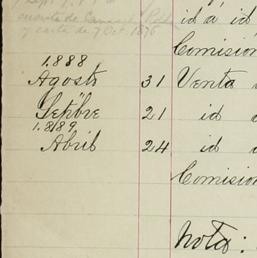 id a id
cuenta de
y carta de 7 Oct. 1876
Comision
1888
Agosto 31 Venta
Sepbre 21 id
1889
Abril 24 id
Comision
Nota: